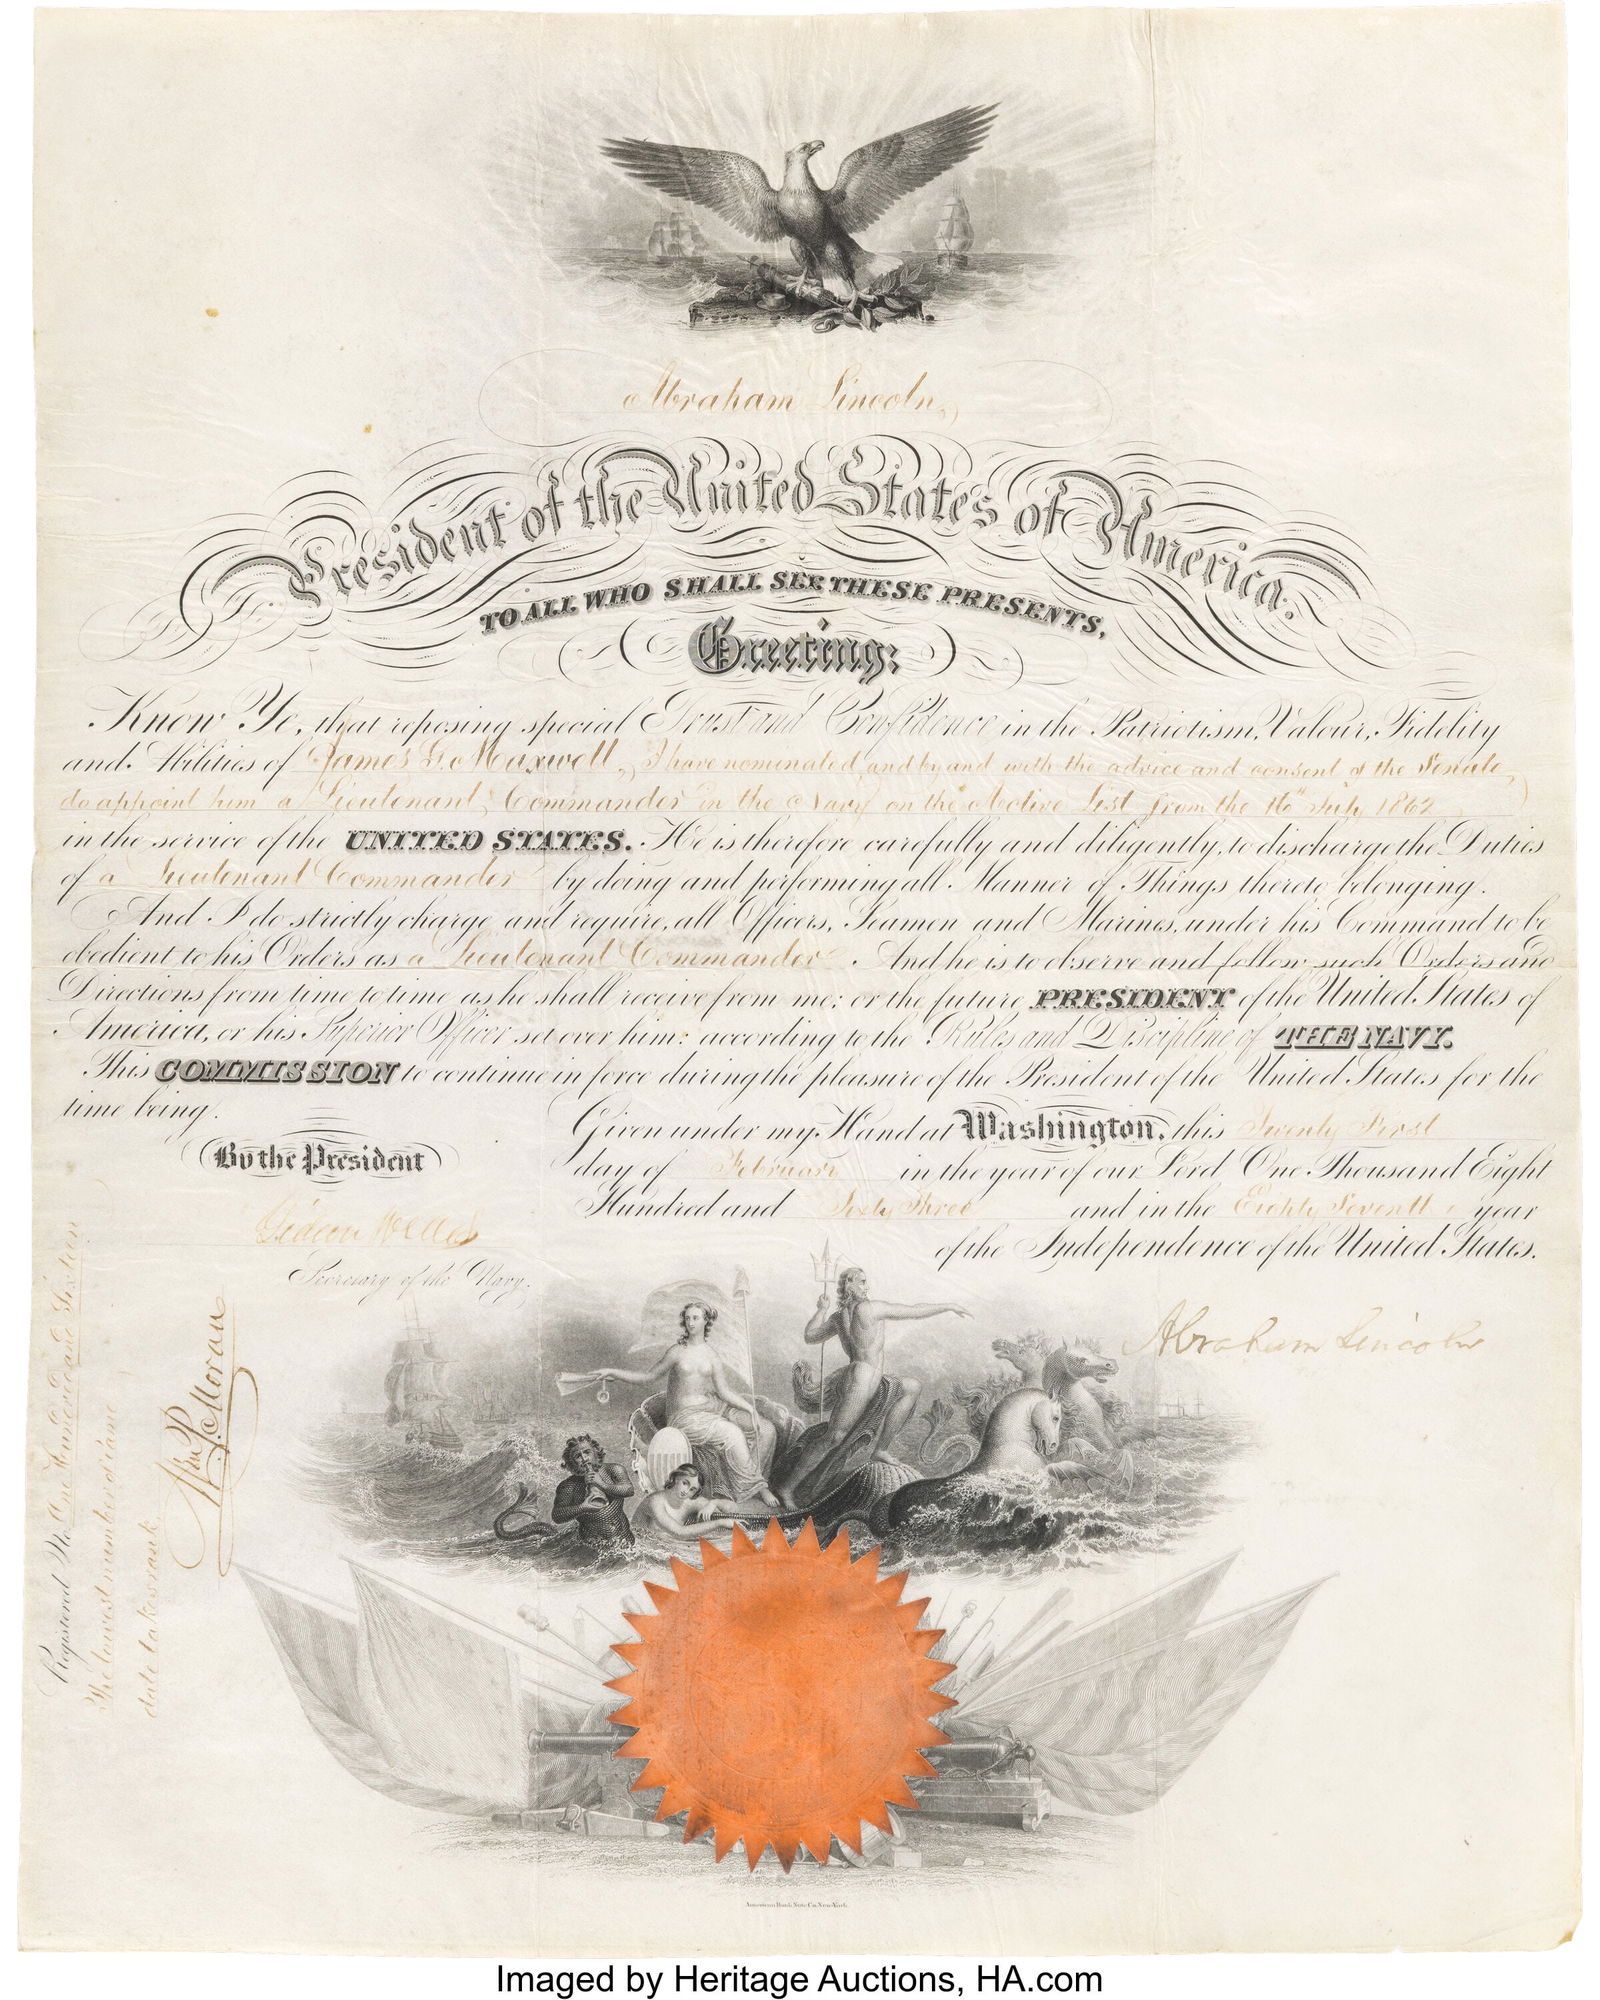 Abraham Lincoln,
President of the United States of America.
TO ALL WHO SHALL SEE THESE PRESENTS,
Greeting:
Know Ye, that reposing special Trust and Confidence in the Patriotism, Valour, Fidelity
and Abilities of James G. Maxwell, I have nominated, and by and with the advice and consent of the Senate,
do appoint him a Lieutenant Commander in the Navy on the Active List from the 16th July 1862
in the service of the UNITED STATES. He is therefore carefully and diligently, to discharge the Duties
of a Lieutenant Commander by doing and performing all Manner of Things thereto belonging.
And I do strictly charge, and require, all Officers, Seamen and Marines, under his Command to be
obedient to his Orders as a Lieutenant Commander. And he is to observe and follow such Orders and
Directions from time to time as he shall receive from me; or the future PRESIDENT of the United States of
America, or his Superior Officer set over him; according to the Rules and Discipline of THE NAVY.
This COMMISSION to continue in force during the pleasure of the President of the United States for the
time being.
Given under my Hand at Washington, this Twenty First
By the President
day of February in the year of our Lord One Thousand Eight
Hundred and Sixty Three and in the Eighty Seventh year
Gideon Welles
of the Independence of the United States.
Secretary of the Navy.
Abraham Lincoln
Registered No. One Hundred and Sixteen
The lowest number of same
date takes rank
Wm P. Moran
American Bank Note Co. New-York.
Imaged by Heritage Auctions, HA.com